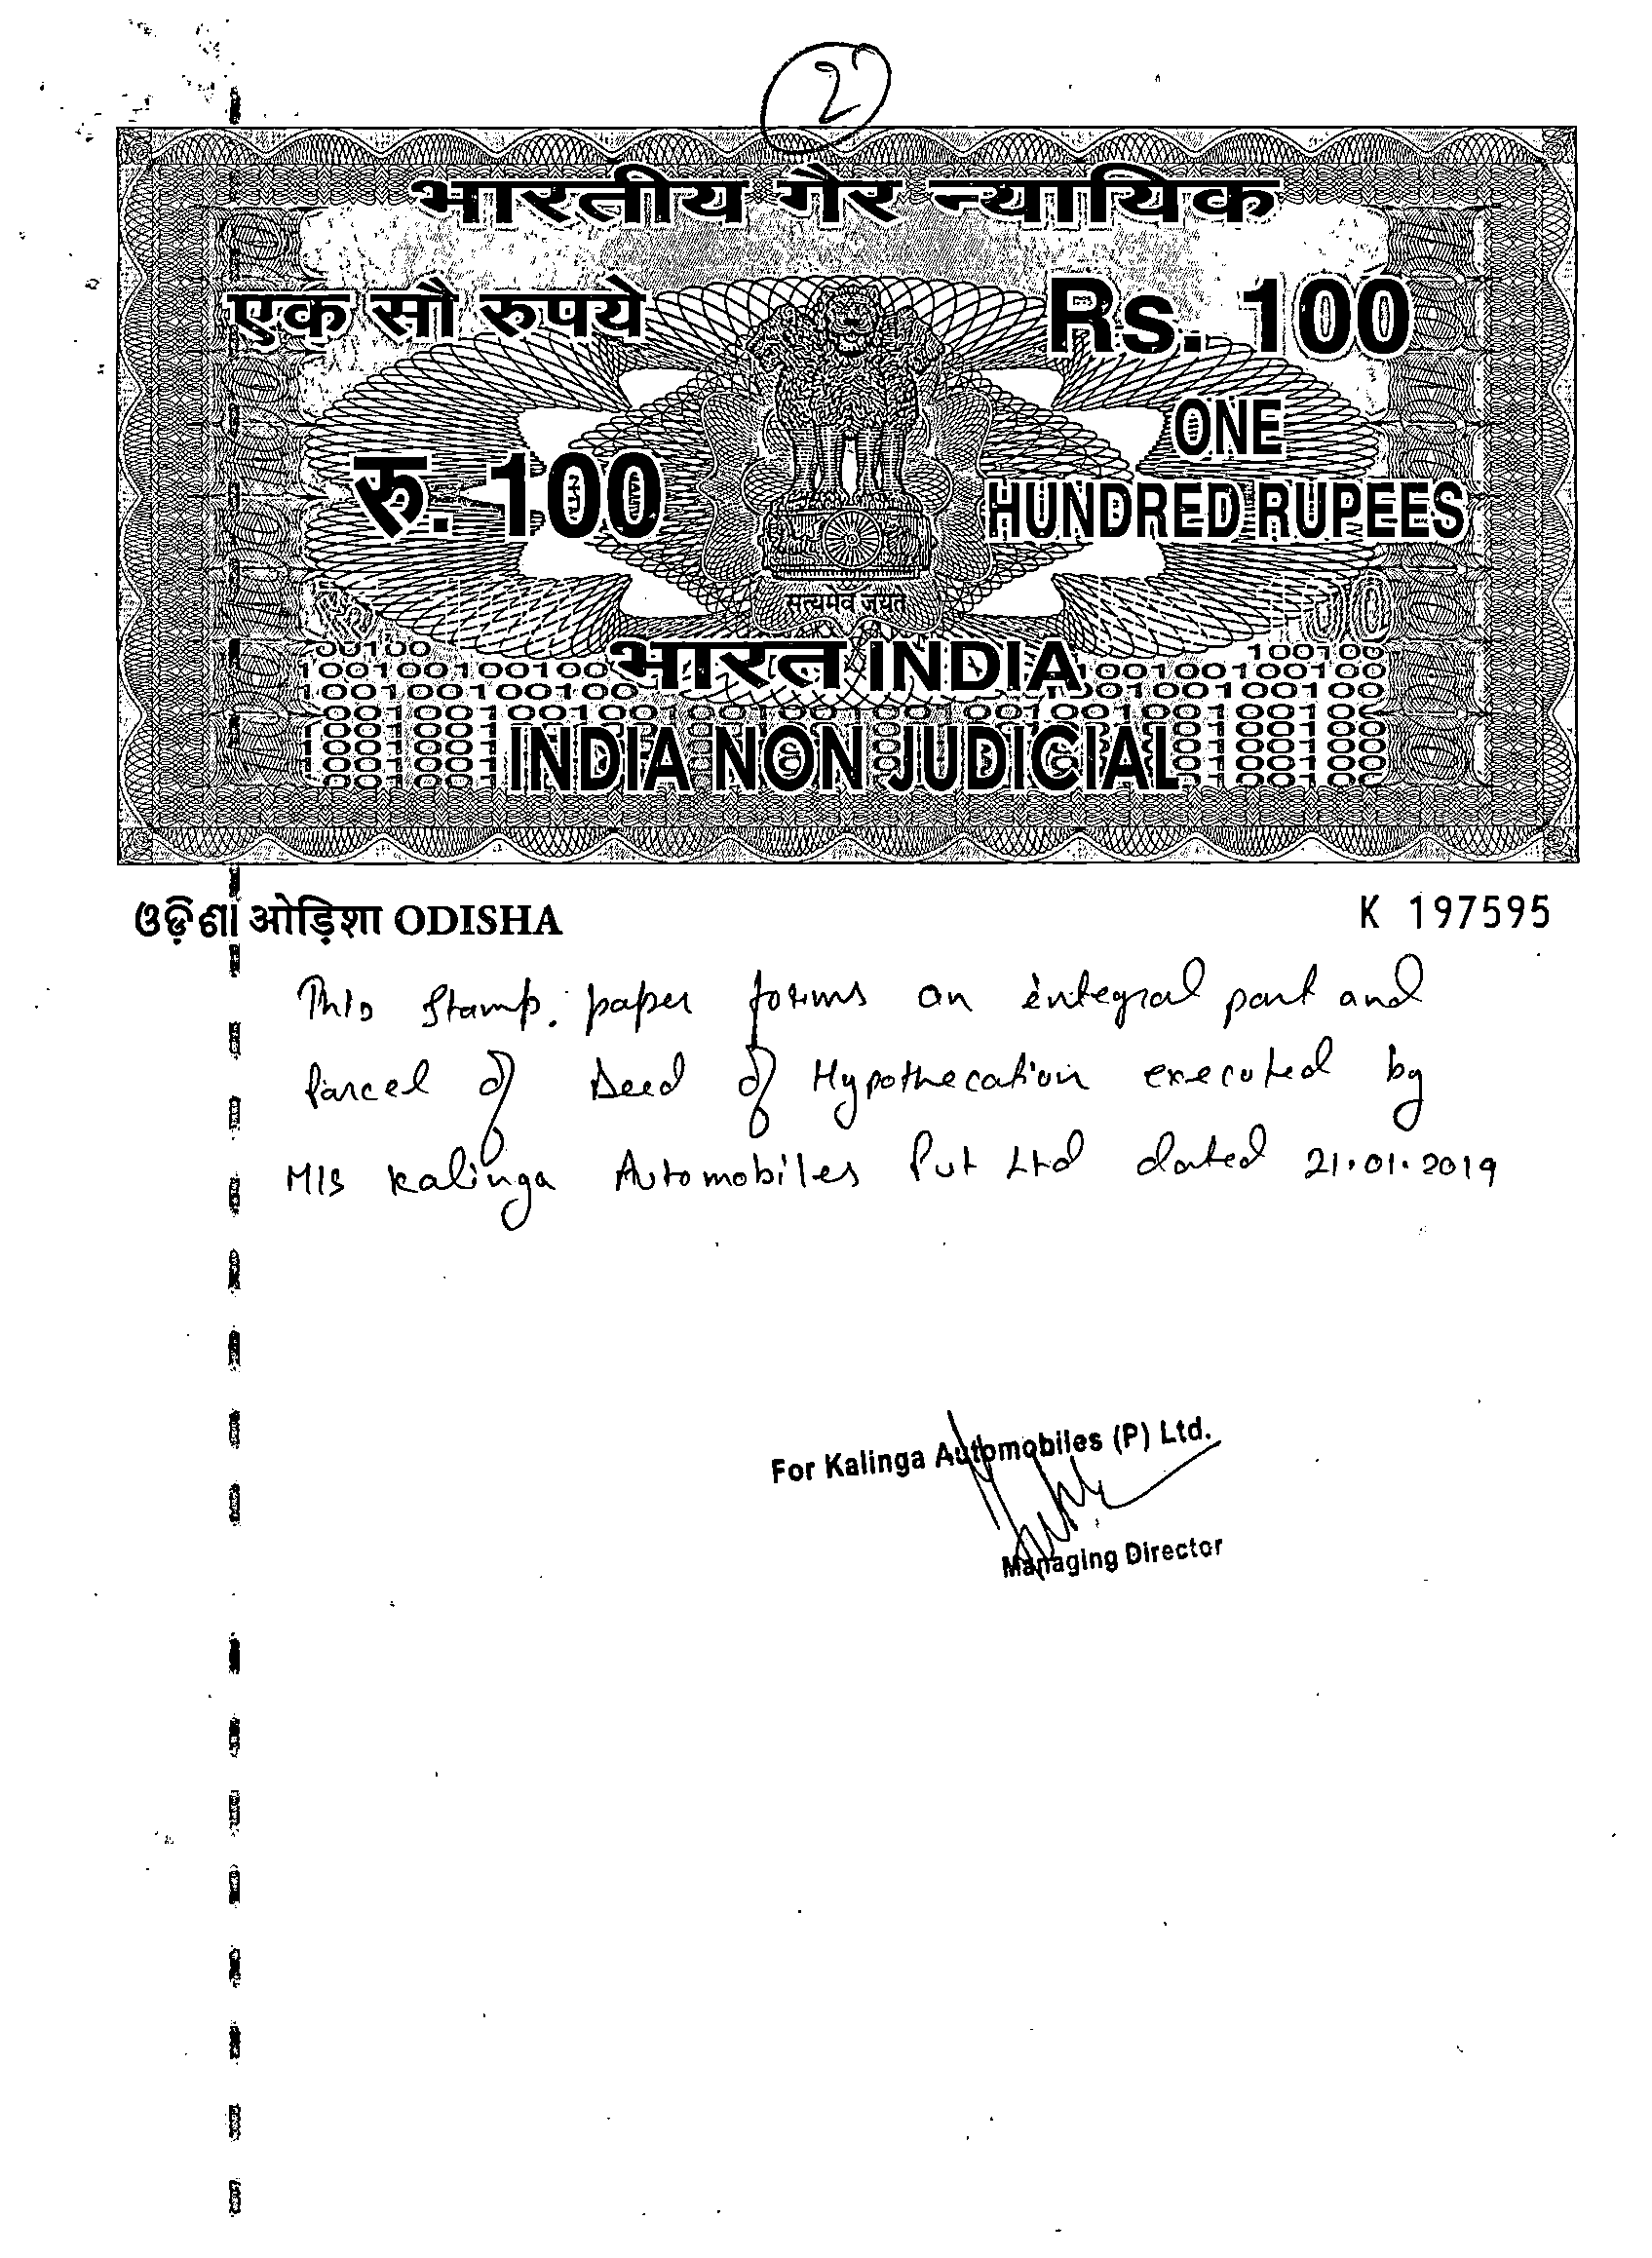 2
भारतीय गैर न्यायिक
एक सौ रुपये
Rs. 100
ONE
रु. 100
HUNDRED RUPEES
सत्यमेव जयते
भारत INDIA
INDIA NON JUDICIAL
ଓଡ଼ିଶା ओड़िशा ODISHA
K 197595
This Stamp. paper forms an integral part and
Parcel of Deed of Hypothecation executed by
M/S Kalinga Automobiles Pvt Ltd dated 21.01.2019
For Kalinga Automobiles (P) Ltd.
Managing Director